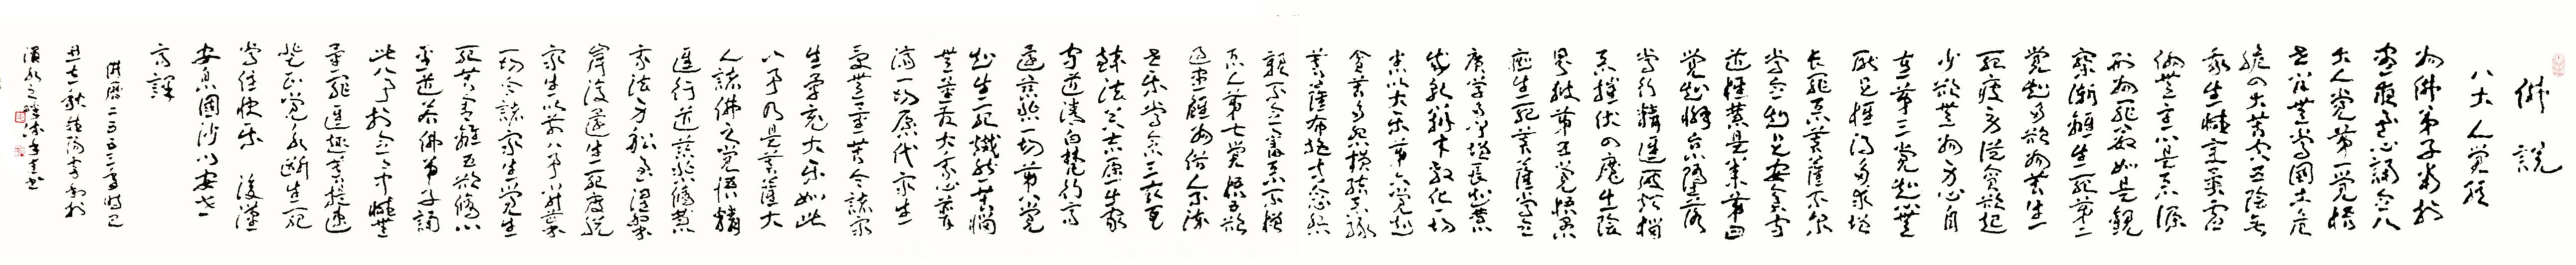 佛說
八大人覺經
為佛弟子常於
晝夜至心誦念八
大人覺第一覺悟
世間無常國土危
脆四大苦空五陰無
我生滅變異虛
偽無主心是惡源
形為罪藪如是觀
察漸離生死第二
覺知多欲為苦生
死疲勞從貪欲起
少欲無為身心自
在第三覺知心無
厭足惟得多求增
長罪惡菩薩不爾
常念知足安貧守
道惟慧是業第四
覺知懈怠墜落
常行精進破煩惱
惡摧伏四魔出陰
界獄第五覺悟愚
癡生死菩薩常念
廣學多聞增長智慧
成就辯才教化一切
悉以大樂第六覺知
貧苦多怨橫結惡緣
菩薩布施等念怨
親不念舊惡不憎
惡人第七覺悟五欲
過患雖為俗人不染
世樂常念三衣瓦
缽法器志願出家
守道清白梵行高
遠慈悲一切第八覺
知生死熾然苦惱
無量發大乘心普
濟一切願代眾生
受無量苦令諸眾
生畢竟大樂如此
八事乃是菩薩大
人諸佛之覺悟精
進行道慈悲修慧
乘法身船至涅槃
岸復還生死度脫
眾生以前八事開導
一切令諸眾生覺生
死苦捨離五欲修心
聖道若佛弟子誦
此八事於念念中滅無
量罪進趣菩提速
登正覺永斷生死
常住快樂 後漢
安息國沙門安世
高譯
佛歷二五五三